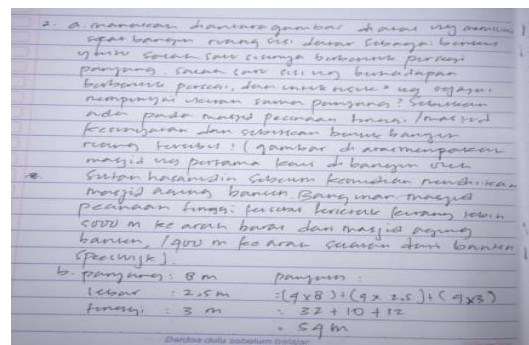 2. a. manakah diantara gambar diatas yg memiliki
sifat bangun ruang sisi datar sebagai berikut
yaitu salah satu sisinya berbentuk persegi
panjang. salah satu sisi yg berhadapan
berbentuk persegi, dan untuk rusuk² yg sejajar
mempunyai ukuran sama panjang? Sebutkan
ada pada masjid pecinaan tinggi /masjid
kesunyatan dan sebutkan bentuk bangun
ruang tersebut! (gambar diatas merupakan
masjid yg pertama kali dibangun oleh
Sultan hasanudin sebelum kemudian mendirikan
masjid agung banten. Bangunan masjid
pecinaan tinggi tersebut terletak kurang lebih
5000 m ke arah barat dari masjid agung
banten, /400 m ke arah selatan dari benteng
speelwijk).
b. panjang : 8 m panjang :
lebar : 2,5 m =(4x8)+(4x2.5)+(4x3)
tinggi : 3 m = 32+10+12
= 54 m
Berdoa dulu sebelum belajar